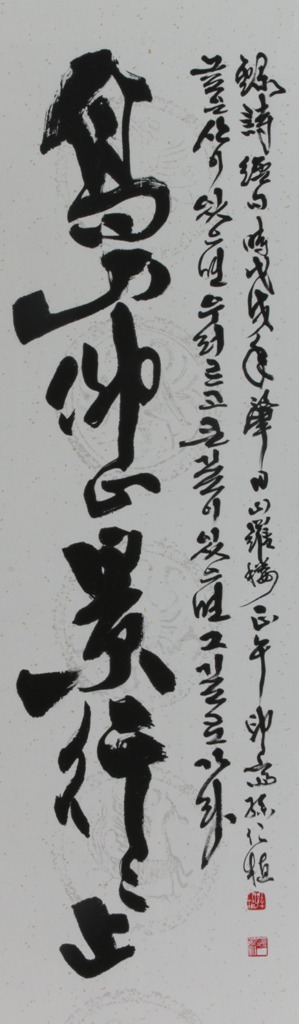 高山仰止景行々止
높은 산이 있으면 우러르고 큰 길이 있으면 그 길로 가라
錄詩經句 時戊戌年 日 山羅樓 正午 孫仁植